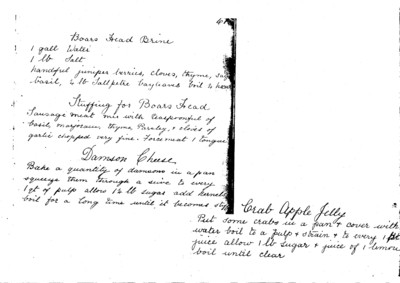 41
Boars Head Brine
1 gall Water
1 lb Salt
handful juniper berries, cloves, thyme,
basil, ¼ lb Saltpetre bayleaves boil ½ hour
Stuffing for Boars Head
Sausage meat mix with teaspoonful of
basil marjoram, thyme Parsley, cloves of
garlic chopped very fine. Forcemeat 1 tongue
Damson Cheese
Bake a quantity of damsons in a pan
squeeze them through a sieve to every
1 qt of pulp allow 1¼ lb sugar add kernels
boil for a long time until it becomes
Crab Apple Jelly
Put some crabs in a pan & cover with
water boil to a pulp & strain & to every 1 pt
juice allow 1 lb sugar & juice of 1 lemon
boil until clear